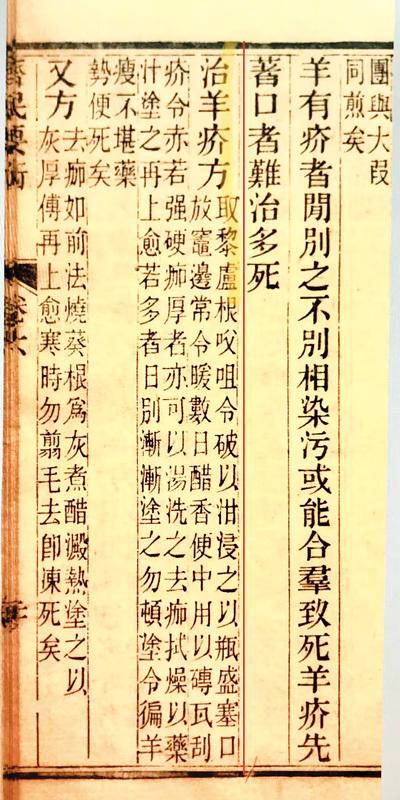 團與大叚
同煎矣
羊有疥者閒別之不別相染污或能合羣致死羊疥先
著口者難治多死
治羊疥方
取黎盧根㕮咀令破以泔浸之以瓶盛塞口
放竈邊常令暖數日醋香便中用以磚瓦刮
疥令赤若强硬痂厚者亦可以湯洗之去痂拭燥以藥
汁塗之再上愈若多者日別漸漸塗之勿頓塗令徧羊
瘦不堪藥
勢便死矣
又方
去痂如前法燒葵根爲灰煮醋澱熱塗之以
灰厚傅再上愈寒時勿翦毛去卽凍死矣
齊民要術
卷六